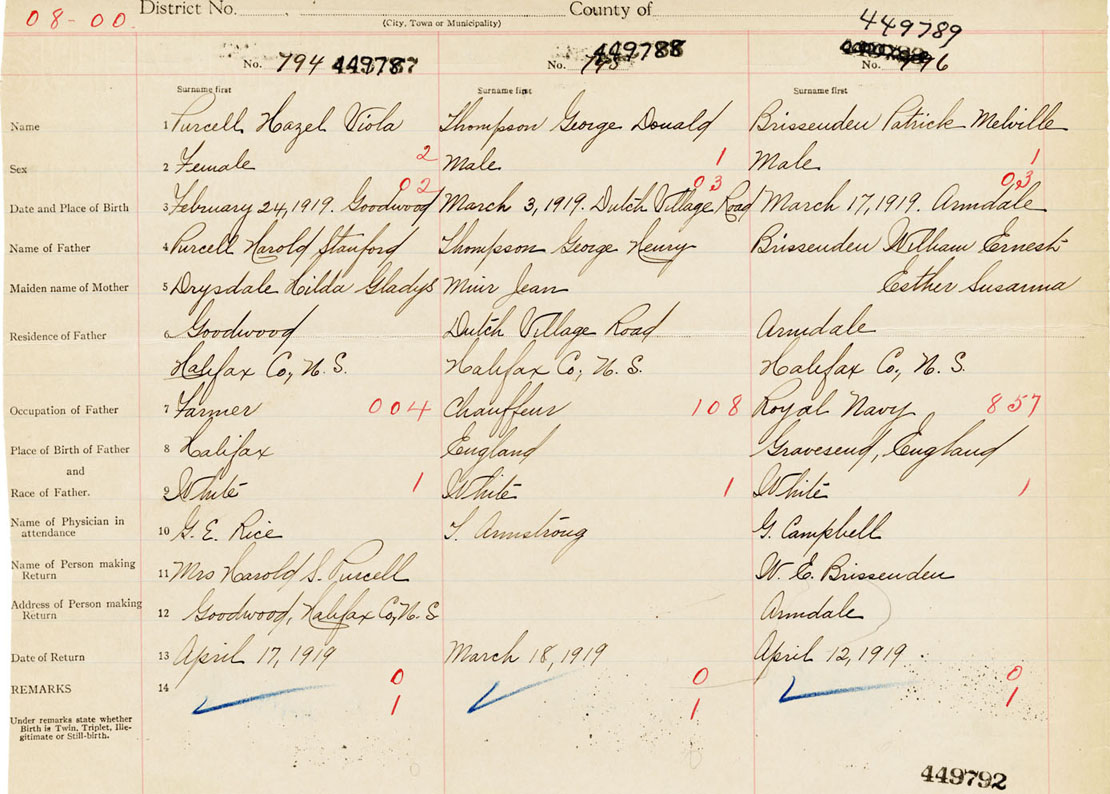 08-00
District No. County of
(City, Town or Municipality)
449789
No. 794 449787 No. 795 449788 No. 796
Surname first Surname first Surname first
Name 1 Purcell Hazel Viola Thompson George Donald Brissenden Patrick Melville
Sex 2 Female 2 Male 1 Male 1
02 03 03
Date and Place of Birth 3 February 24, 1919. Goodwood March 3, 1919. Dutch Village Road March 17, 1919. Armdale
Name of Father 4 Purcell Harold Stanford Thompson George Henry Brissenden William Ernest
Maiden name of Mother 5 Drysdale Hilda Gladys Muir Jean Esther Susanna
Residence of Father 6 Goodwood Dutch Village Road Armdale
Halifax Co, N. S. Halifax Co, N. S. Halifax Co, N. S.
Occupation of Father 7 Farmer 004 Chauffeur 108 Royal Navy 857
Place of Birth of Father 8 Halifax England Gravesend, England
and
Race of Father. 9 White 1 White 1 White 1
Name of Physician in
attendance 10 G. E. Rice T. Armstrong G. Campbell
Name of Person making
Return 11 Mrs Harold S. Purcell W. E. Brissenden
Address of Person making
Return 12 Goodwood, Halifax Co, N. S Armdale
Date of Return 13 April 17, 1919 March 18, 1919 April 12, 1919.
REMARKS 14 0 0 0
1 1 1
Under remarks state whether
Birth is Twin, Triplet, Ille-
gitimate or Still-birth.
449792